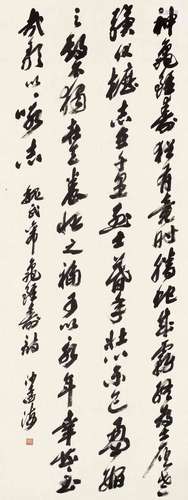 神龜雖壽猶有竟時騰蛇乘霧終為土灰老
驥伏櫪志在千里烈士暮年壯心不已盈縮
之期不獨在天養怡之福可以永年幸甚至
哉歌以詠志 魏武帝龜雖壽詩 沙孟海